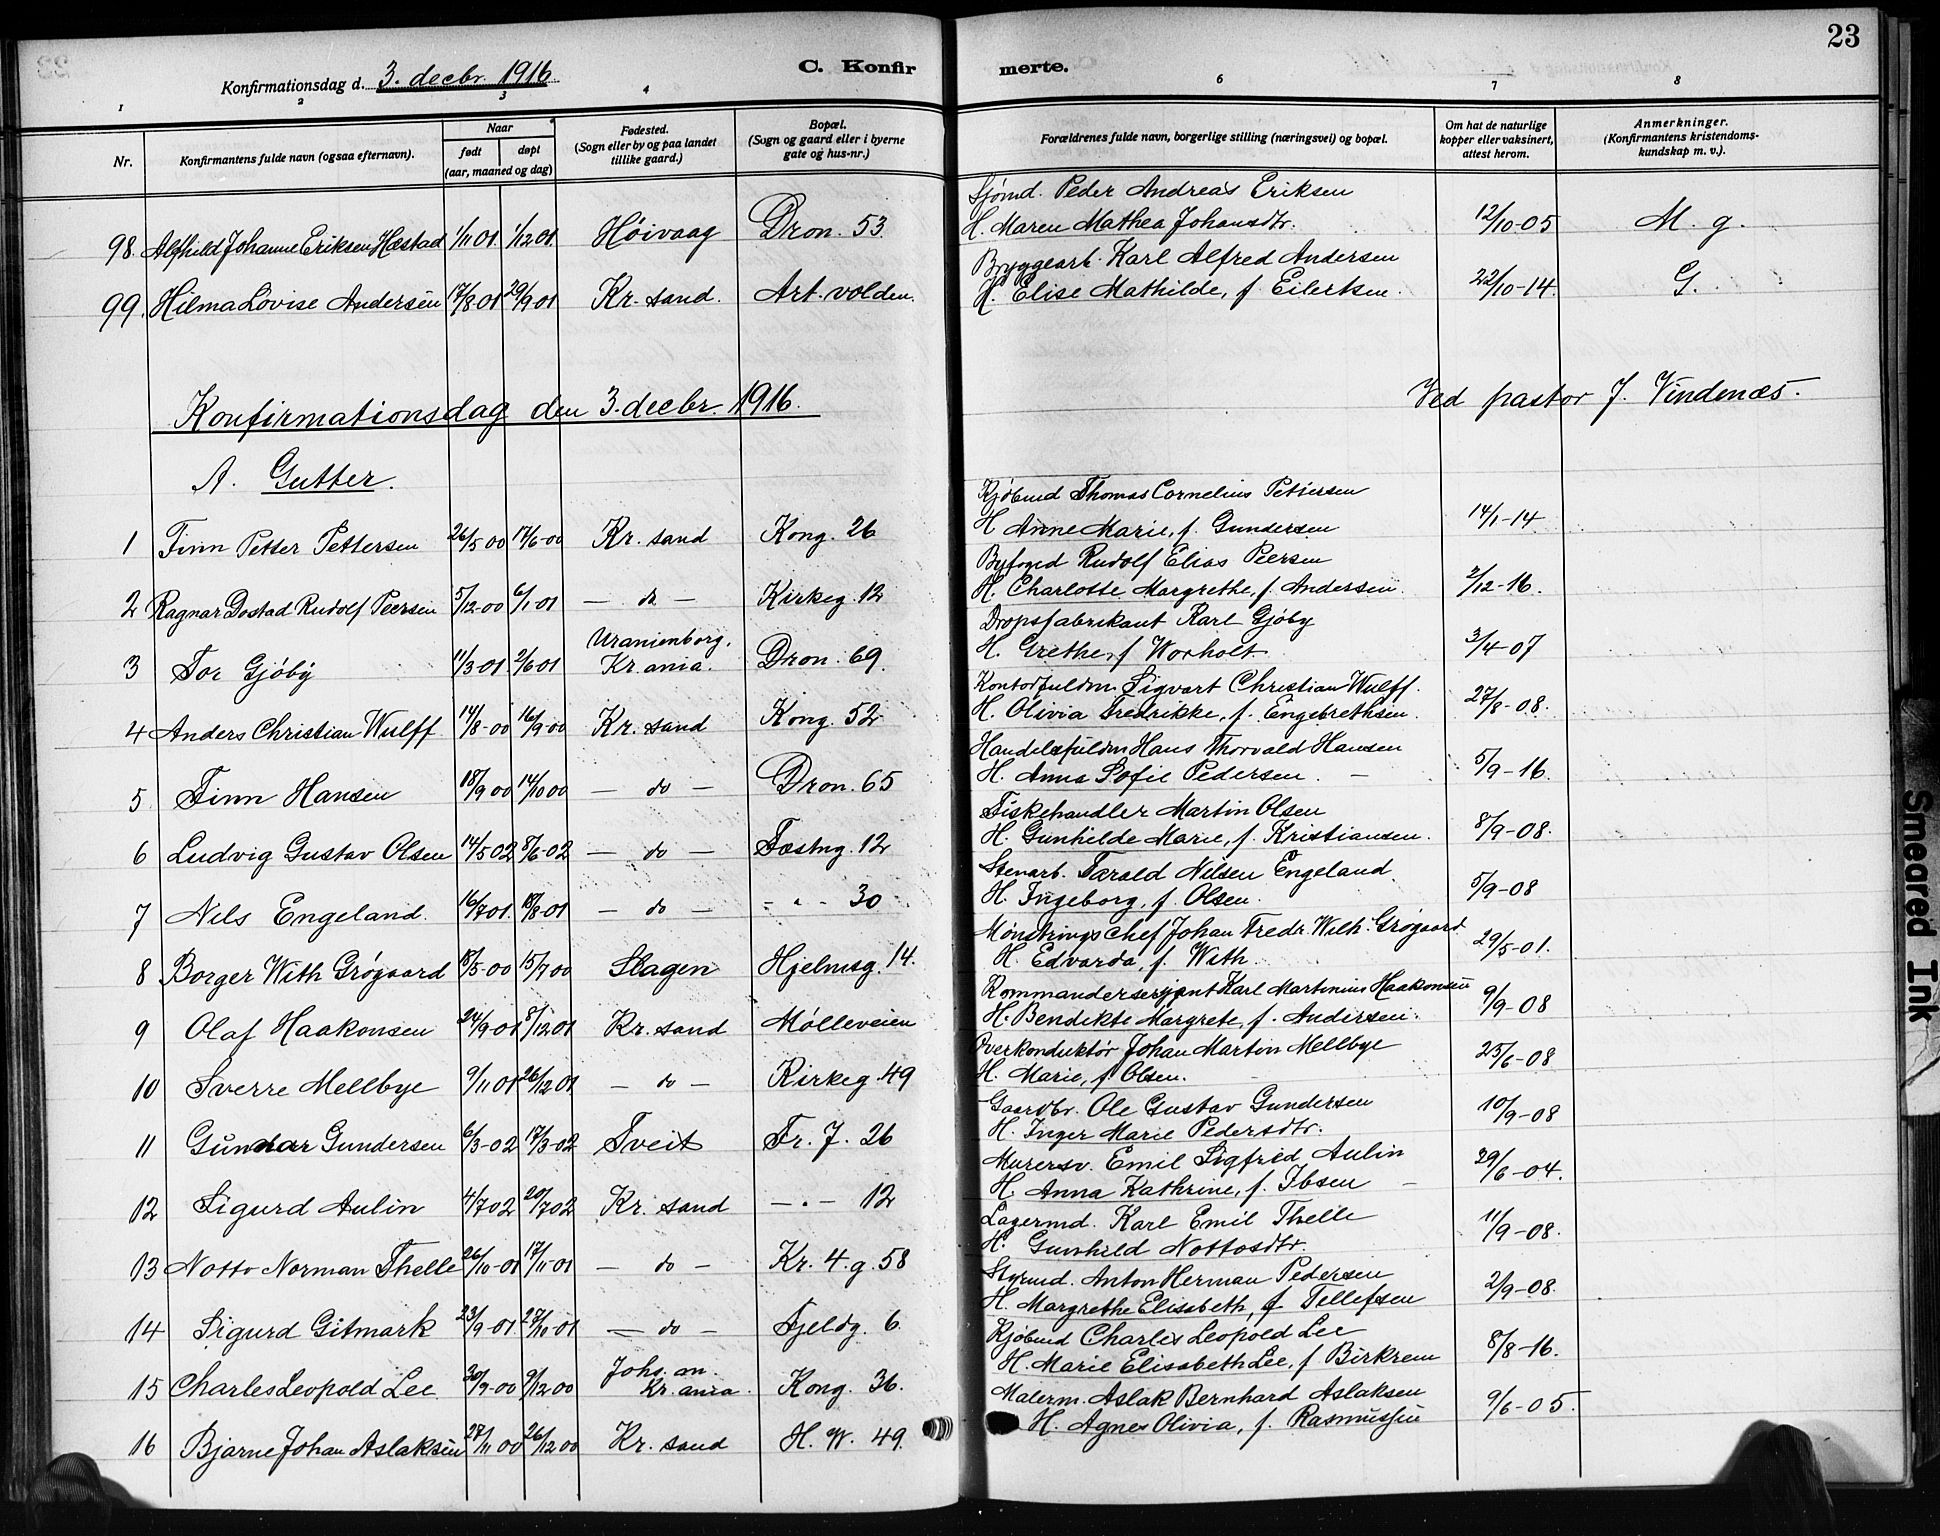 23
Konfirmationsdag d. 3. decbr. 1916
C. Konfirmerte.
1 2 3 4 6 7 8
Nr.
Konfirmantens fulde navn (ogsaa efternavn).
Naar
født
døpt
(aar, maaned og dag)
Fødested.
(Sogn eller by og paa landet
tillike gaard.)
Bopæl.
(Sogn og gaard eller i byerne
gate og hus-nr.)
Forældrenes fulde navn, borgerlige stilling (næringsvei) og bopæl.
Om hat de naturlige
kopper eller vaksinert,
attest herom.
Anmerkninger.
(Konfirmantens kristendoms-
kundskap m. v.).
Sjømd. Peder Andreas Eriksen
98. Alfhild Johanne Eriksen Hæstad 1/11 01 1/12 01 Høivaag Dron. 53 H. Maren Mathea Johansdtr. 12/10-05 M. g.
Bryggearb. Karl Alfred Andersen
99. Hilma Lovise Andersen 17/8 01 29/9 01 Kr. sand. Art. volden. H. Elise Mathilde, f. Eilertsen. 22/10-14. G.
Konfirmationsdag den 3. decbr. 1916. Ved pastor J. Vindenæs.
A. Gutter.
Kjøbmd Thomas Cornelius Pettersen
1 Finn Petter Pettersen 26/5 00 17/6-00 Kr. sand Kong. 26 H Anne Marie, f. Gundersen 14/1-14
Byfogd Rudolf Elias Peersen
2 Ragnar Dostad Rudolf Peersen 5/12-00 6/1-01 — do — Kirkeg. 12 H. Charlotte Margrethe, f. Andersen. 2/12-16.
Dropsfabrikant Karl Gjøby
3 Tor Gjøby 11/3-01 2/6-01 Uranienborg, Kr.ania. Dron. 69. H. Grethe, f Worholt. 3/4-07
Kontorfuldm. Sigvart Christian Wulff.
4 Anders Christian Wulff 14/8-00 16/9-00 Kr. sand Kong. 52 H. Olivia Fredrikke, f. Engebrethsen. 27/8-08.
Handelsfuldm Hans Thorvald Hansen
5 Finn Hansen 18/9 00 14/10 00 — do — Dron. 65 H. Anna Sofie Pedersen. — 5/9-16.
Fiskehandler Martin Olsen
6 Ludvig Gustav Olsen 14/5 02 8/6-02 — do — Fæstng. 12 H. Gunhilde Marie, f. Kristiansen. 8/9-08.
Stenarb. Tarald Nilsen Engeland
7 Nils Engeland. 16/7 01. 18/8-01 — do — - " - 30 H. Ingeborg, f. Olsen. 5/9-08
Mønstringschef Johan Fredr. Wilh. Grøgaard
8 Borger With Grøgaard 18/5-00 15/7 00 Slagen Hjelmsg. 14. H. Edvarda, f. With. 29/5-01.
Kommandersersjant Karl Martinius Haakonsen
9 Olaf Haakonsen 24/9 01 8/12 01 Kr. sand Mølleveien H. Bendikte Margrete, f. Andersen. 9/9-08
Overkonduktør Johan Martin Mellbye
10 Sverre Mellbye 9/11 01 26/12 01 — do — Kirkeg. 49 H. Marie, f. Olsen. 25/6-08
Gaardbr. Ole Gustav Gundersen
11 Gunnar Gundersen 6/3-02 17/3-02 Tveit Fr. 7. 26 H. Inger Marie Pedersdtr. 10/9-08
Murersv. Emil Sigfred Aulin
12 Sigurd Aulin 4/7 02 20/7 02 Kr. sand — . — 12 H. Anna Kathrine, f. Ibsen — 29/6-04.
Lagermd. Karl Emil Thelle
13 Notto Norman Thelle 26/10-01 17/11-01 — do — Kr. 4. g. 58 H. Gunhild Nottosdtr. 11/9-08.
Styrmd. Anton Herman Pedersen
14 Sigurd Gitmark 23/9-01 27/10 01 — do — Fjeldg. 6. H. Margrethe Elisabeth, f Tellefsen 2/9-08.
Kjøbmd Charles Leopold Lee
15 Charles Leopold Lee 30/9-00 9/12 00 Johs. an. Kr. ania. Kong. 36. H. Marie Elisabeth Lee, f Birkrem 8/8-16.
Malerm. Aslak Bernhard Aslaksen
16 Bjarne Johan Aslaksen 27/11 00 26/12 00 Kr. sand H. W. 49. H. Agnes Olivia, f. Rasmussen 9/6-05.
Smeared Ink